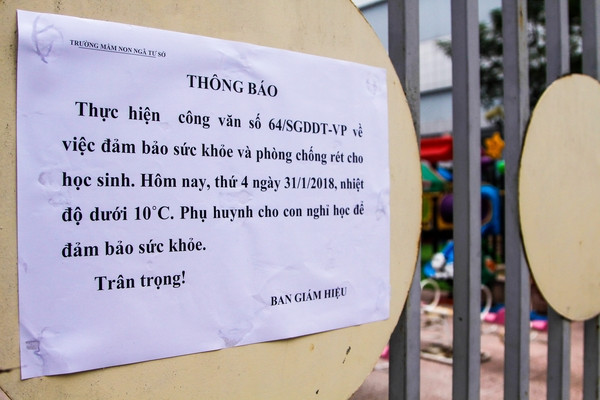 TRƯỜNG MẦM NON NGÃ TƯ SỞ
THÔNG BÁO
Thực hiện công văn số 64/SGDDT-VP về
việc đảm bảo sức khỏe và phòng chống rét cho
học sinh. Hôm nay, thứ 4 ngày 31/1/2018, nhiệt
độ dưới 10°C. Phụ huynh cho con nghỉ học để
đảm bảo sức khỏe.
Trân trọng!
BAN GIÁM HIỆU